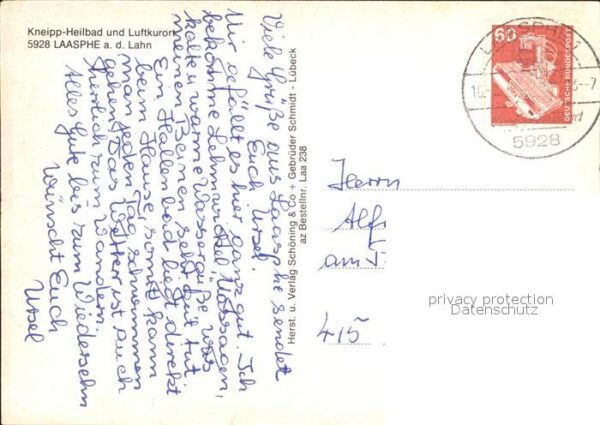 Kneipp-Heilbad und Luftkurort
5928 LAASPHE a. d. Lahn
Viele Grüße aus Laasphe sendet
Euch Ursel.
Mir gefällt es hier ganz gut. Ich
bekomme Lehmwickel, Massagen,
kalte u. warme Wassergüße, was
meinen Beinen sehr gut tut.
Ein Hallenbad liegt direkt
beim Hause, somit kann
man jeden Tag schwimmen
gehen. Das Wetter ist auch
herrlich zum Wandern.
Alles Gute bis zum Wiedersehn
wünscht Euch
Ursel
Herst. u. Verlag Schöning & Co + Gebrüder Schmidt - Lübeck
az Bestellnr. Laa 238
60
DEUTSCHE BUNDESPOST
LAASPHE 1
5928
Herrn
Alf
am
415
privacy protection
Datenschutz